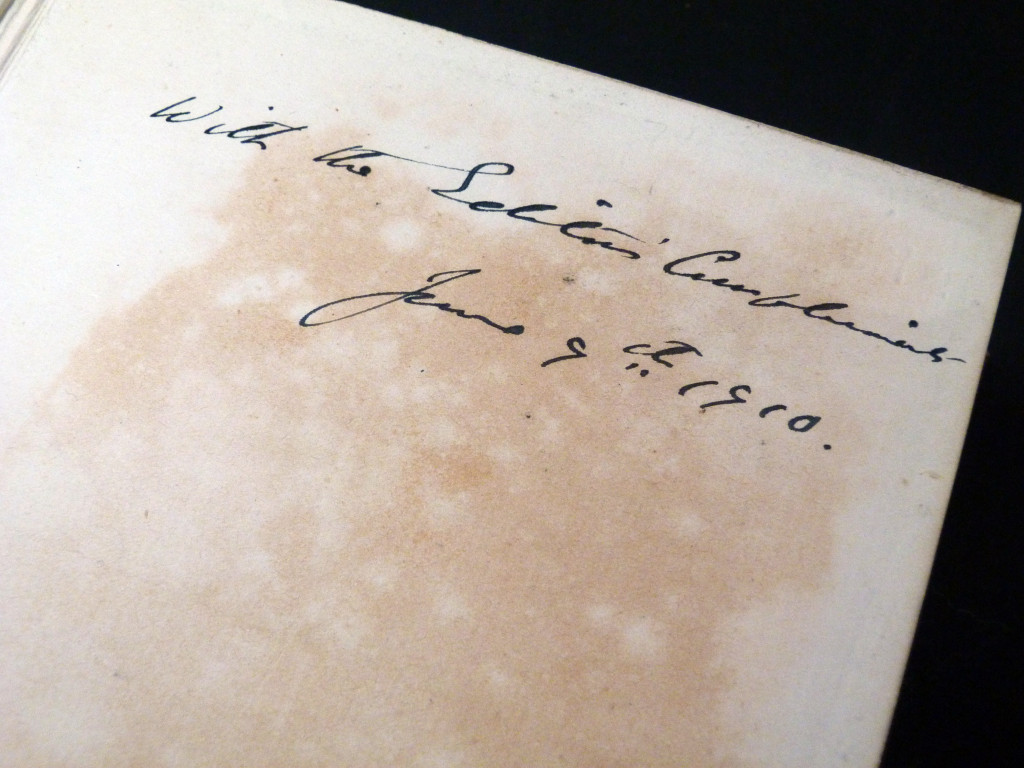 With the Editor's Compliments
June 9th 1910.